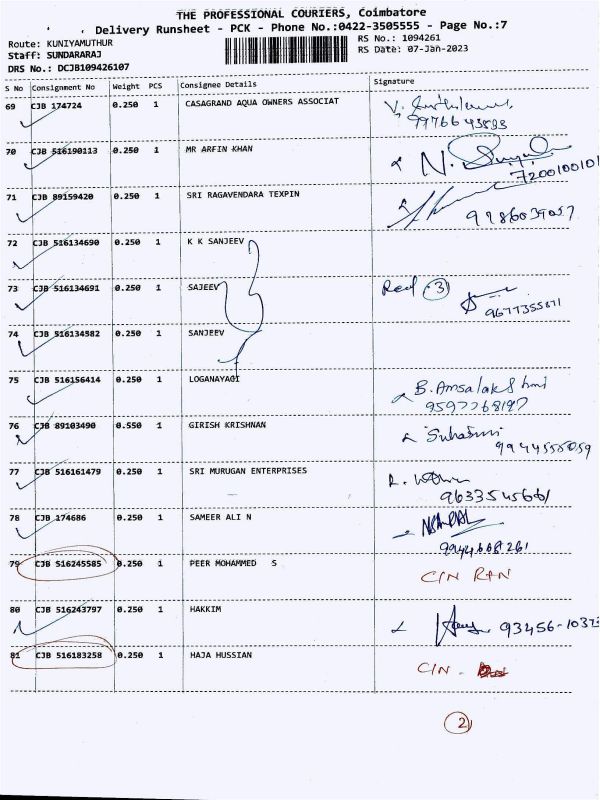 THE PROFESSIONAL COURIERS, Coimbatore
Delivery Runsheet - PCK - Phone No.:0422-3505555 - Page No.:7
Route: KUNIYAMUTHUR RS No.: 1094261
Staff: SUNDARARAJ RS Date: 07-Jan-2023
DRS No.: DCJB109426107
S No Consignment No Weight PCS Consignee Details Signature
69 CJB 174724 0.250 1 CASAGRAND AQUA OWNERS ASSOCIAT
70 CJB 516190113 0.250 1 MR ARFIN KHAN N.
7200100101
71 CJB 89159420 0.250 1 SRI RAGAVENDARA TEXPIN
72 CJB 516134690 0.250 1 K K SANJEEV
73 CJB 516134691 0.250 1 SAJEEV Recd 3
74 CJB 516134582 0.250 1 SANJEEV
75 CJB 516156414 0.250 1 LOGANAYAGI B.
76 CJB 89103490 0.550 1 GIRISH KRISHNAN
77 CJB 516161479 0.250 1 SRI MURUGAN ENTERPRISES
78 CJB 174686 0.250 1 SAMEER ALI N
79 CJB 516245585 0.250 1 PEER MOHAMMED S C/N
80 CJB 516243797 0.250 1 HAKKIM 93456-10323
81 CJB 516183258 0.250 1 HAJA HUSSIAN C/N -
2